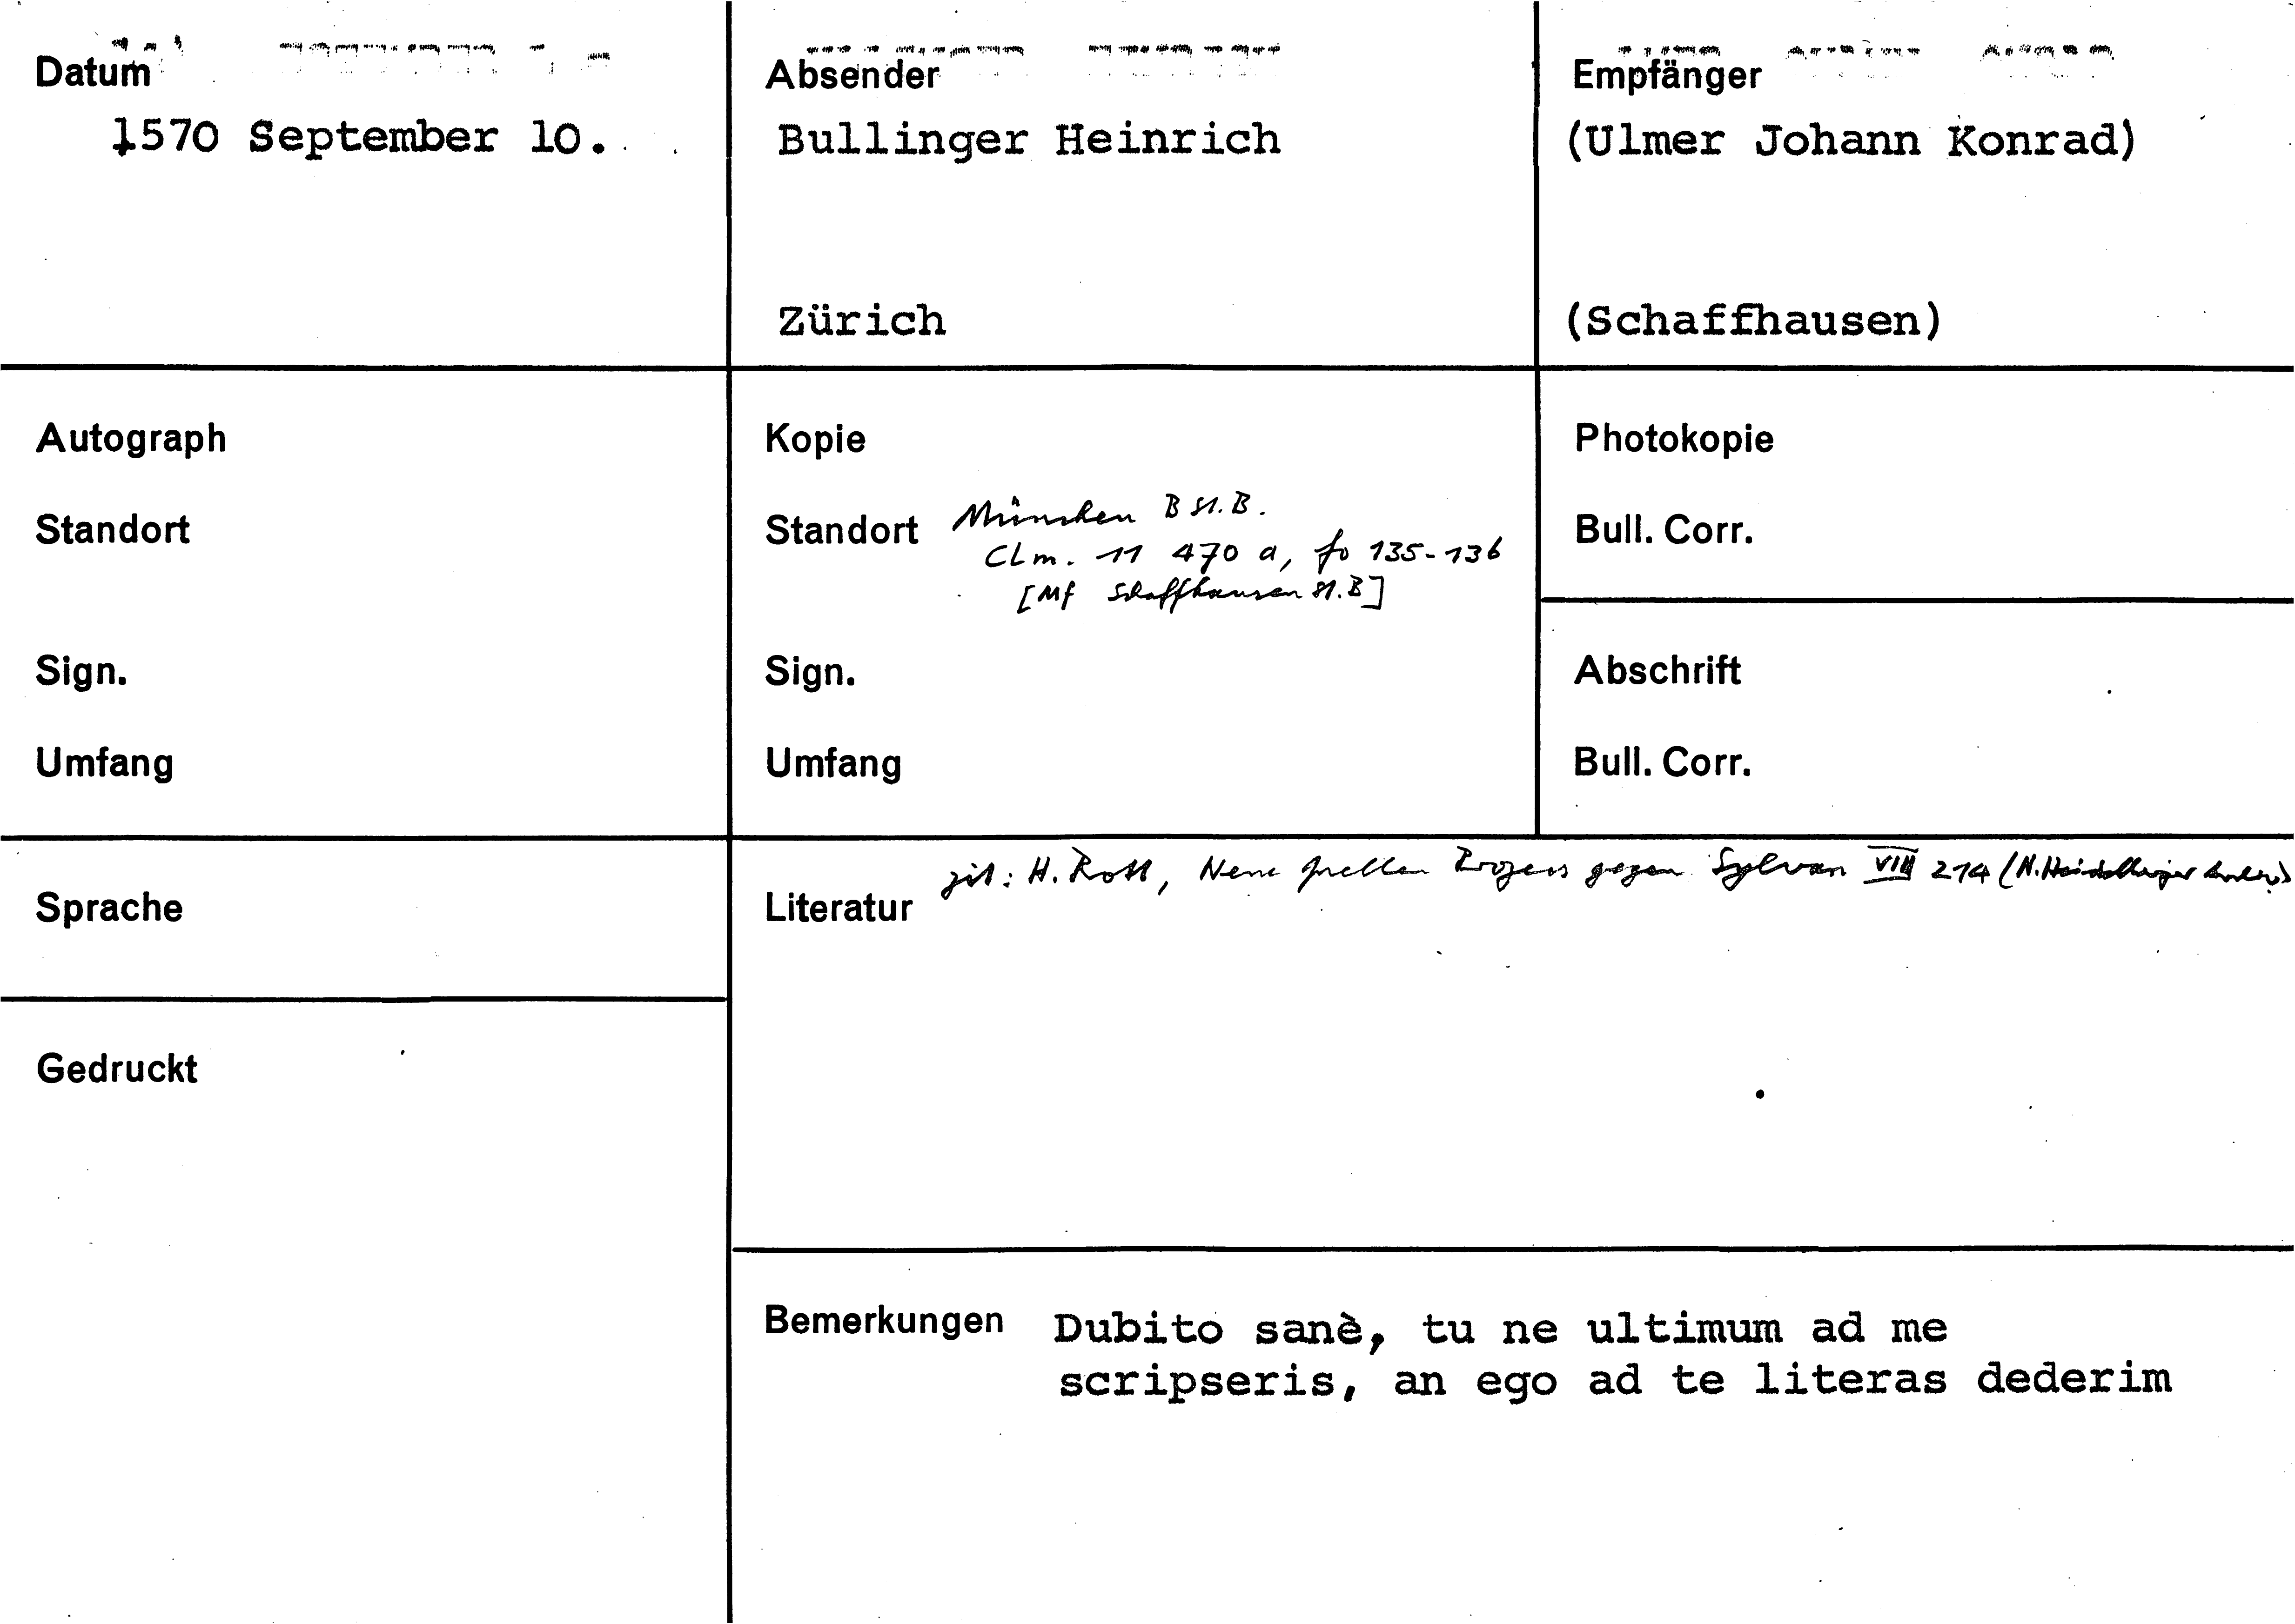 Datum
1570 September 10.
Absender
Bullinger Heinrich
Zürich
Empfänger
(Ulmer Johann Konrad)
(Schaffhausen)
Autograph
Standort
Sign.
Umfang
Kopie
Standort München B St. B.
CLm. 11 470 a, fo 135-136
[Mf Schaffhausen St. B]
Sign.
Umfang
Photokopie
Bull. Corr.
Abschrift
Bull. Corr.
Sprache
Gedruckt
zit: H. Rott, Neue Quellen Prozess gegen Sylvan VIII 214 (N. Heidelberger
Literatur
Bemerkungen Dubito sanè, tu ne ultimum ad me
scripseris, an ego ad te literas dederim